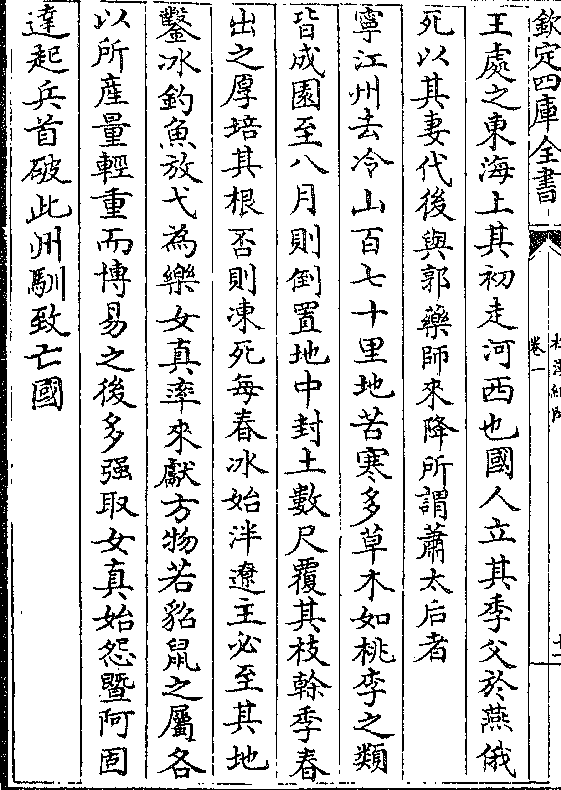 欽定四庫全書
卷一
王處之東海上其初走河西也國人立其季父於燕俄
死以其妻代後與郭藥師來降所謂蕭太后者
寧江州去冷山百七十里地苦寒多草木如桃李之類
皆成園至八月則倒置地中封土數尺覆其枝榦季春
出之厚培其根否則凍死每春冰始泮遼主必至其地
鑿冰釣魚放弋為樂女真率來獻方物若貂鼠之屬各
以所產量輕重而博易之後多强取女真始怨暨阿固
達起兵首破此州馴致亡國